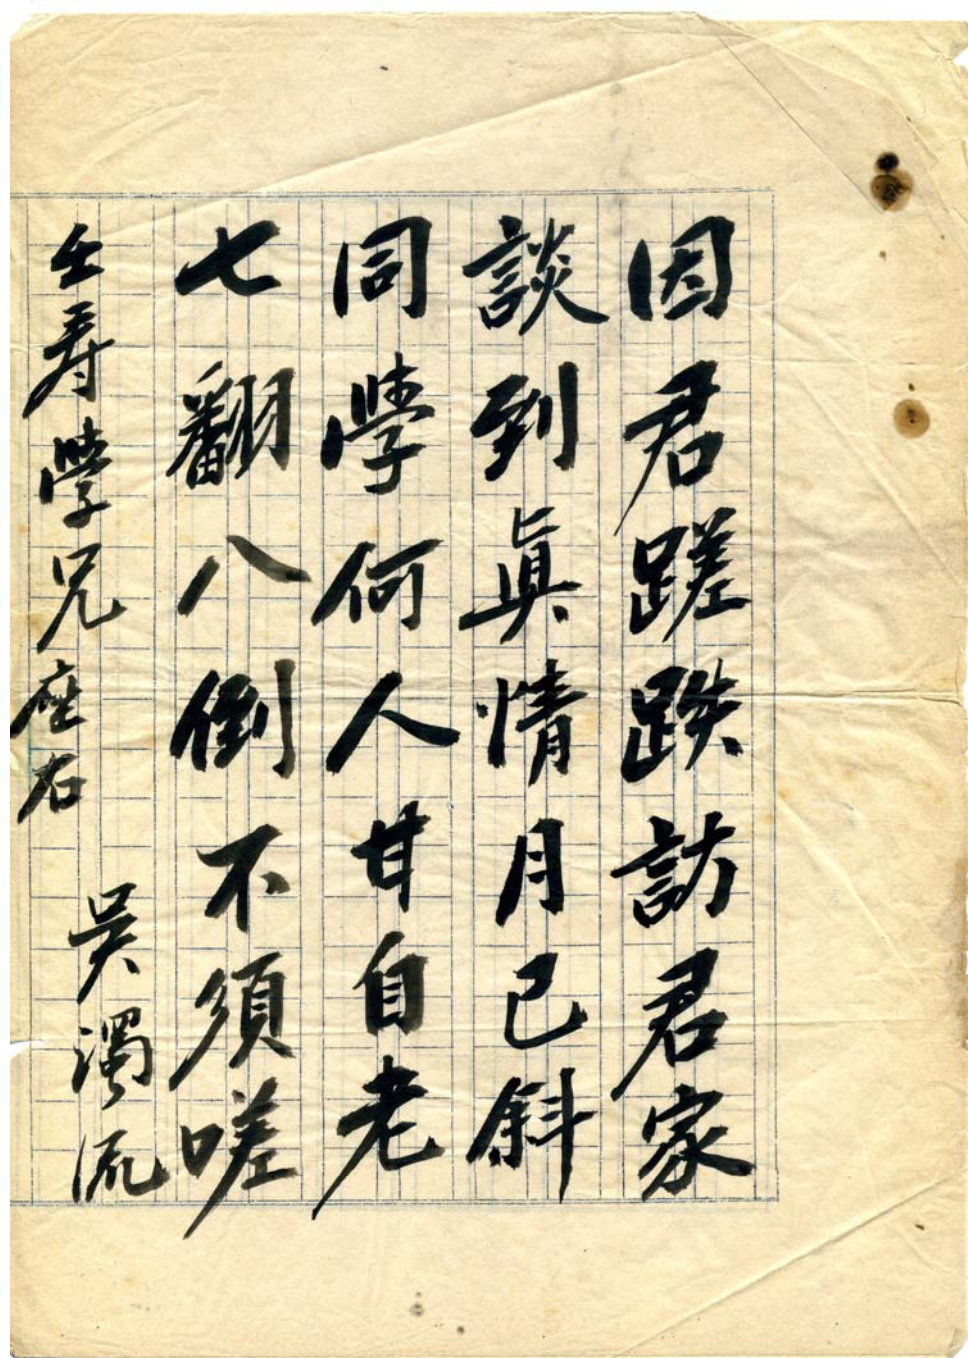 因君蹉跌訪君家
談到眞情月已斜
同學何人甘自老
七翻八倒不須嗟
壬寿學兄座右
吴濁流